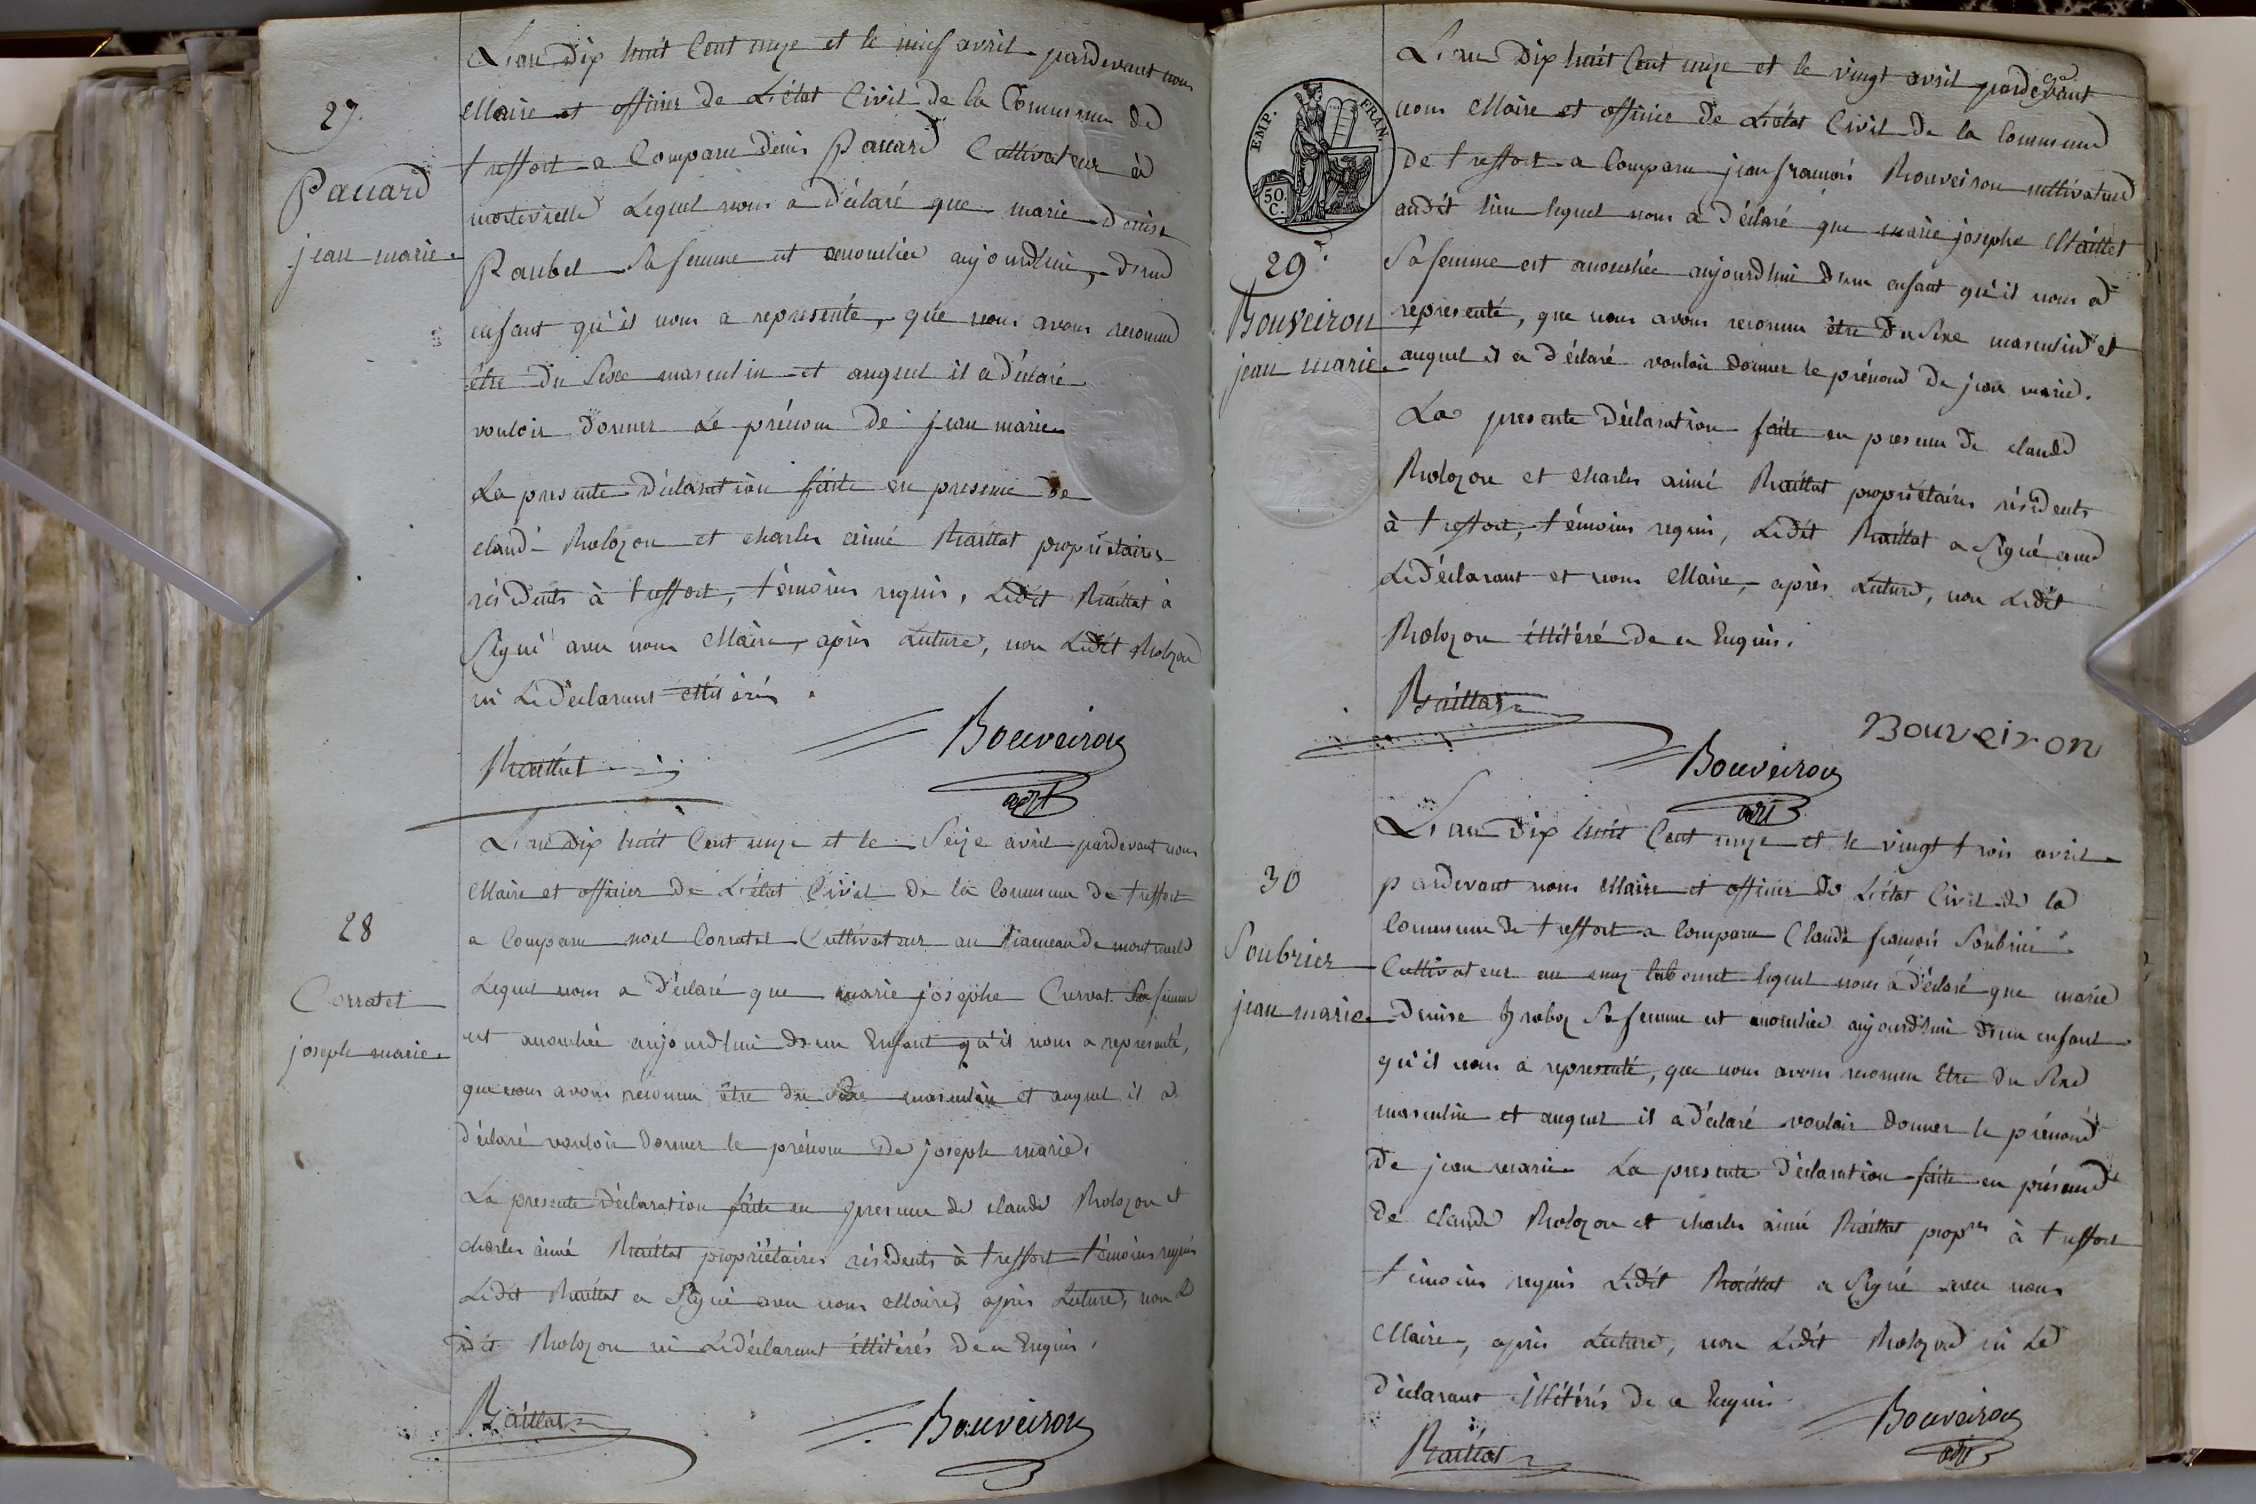 27.
Pauard
jean marie.
L'an dix huit Cent onze et le neuf avril pardevant nous
Maire et officier de L'état Civil de la Commune de
treffort a Comparu denis Pauard Cultivateur à
Lequel nous a déclaré que marie denise
Paubel Sa femme est accouchée aujourdhui, d'un
enfant qu'il nous a representé, que nous avons reconnu
être du Sexe masculin et auquel il a déclaré
vouloir donner Le prénom de jean marie
La presente déclaration faite en presence de
claude Molozon et charles aimé Maillat propriétaires
résidents à treffort, témoins requis, Ledit Maillat à
Signé avec nous Maire, après Lecture, non Ledit Molozon
ni Le déclarant illitérés.
Maillat
Bouveiron
28
Corratet
joseph marie.
L'an dix huit Cent onze et le Seize avril pardevant nous
Maire et officier de L'état Civil de la Commune de treffort
a Comparu noel Corratet Cultivateur au hameau de
Lequel nous a déclaré que marie josephe Curvat Sa femme
est accouchée aujourdhui d'un Enfant qu'il nous a representé,
que nous avons reconnu être du Sexe masculin et auquel il a
déclaré vouloir donner le prénom de joseph marie.
La presente déclaration faite en presence de claude Molozon et
charles aimé Maillat propriétaires résidents à treffort témoins requis
Ledit Maillat a Signé avec nous Maire, après Lecture, non Le
dit Molozon ni Le déclarant illitérés de ce Enquis.
Maillat
Bouveiron
EMP. FRAN.
50. C.
29
Bouveiron
jean marie.
L'an dix huit Cent onze et le vingt avril pardevant
nous Maire et officier de L'état Civil de la Commune
de treffort a Comparu jean françois Bouveiron cultivateur
audit lieu lequel nous a déclaré que marie josephe Maillet
Sa femme est accouchée aujourdhui d'un enfant qu'il nous a
representé, que nous avons reconnu être du Sexe masculin et
auquel il a déclaré vouloir donner le prénom de jean marie.
La presente déclaration faite en presence de claude
Molozon et charles aimé Maillat propriétaires résidents
à treffort, témoins requis, Ledit Maillat a Signé avec
Le déclarant et nous Maire, après Lecture, non Ledit
Molozon illitéré de ce Enquis.
Maillat
Bouveiron
Bouveiron
30
Soubrier
jean marie.
L'an dix huit Cent onze et le vingt trois avril
pardevant nous Maire et officier de L'état Civil de la
Commune de treffort a Comparu Claude françois Soubrier
Cultivateur au lequel nous a déclaré que marie
Denise Sa femme est accouchée aujourdhui d'un enfant
qu'il nous a representé, que nous avons reconnu Etre du Sexe
masculin et auquel il a déclaré vouloir donner le prénom
de jean marie La presente déclaration faite en présence
de claude Molozon et charles aimé Maillat propres à treffort
témoins requis Ledit Maillat a Signé avec nous
Maire, après Lecture, non Ledit Molozon ni Le
déclarant illitérés de ce Enquis
Maillat
Bouveiron